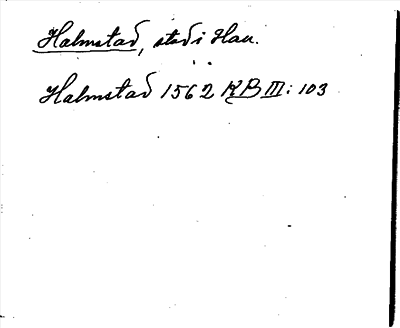 Halmstad, stad i Hall.
Halmstad 1562 RB III: 103